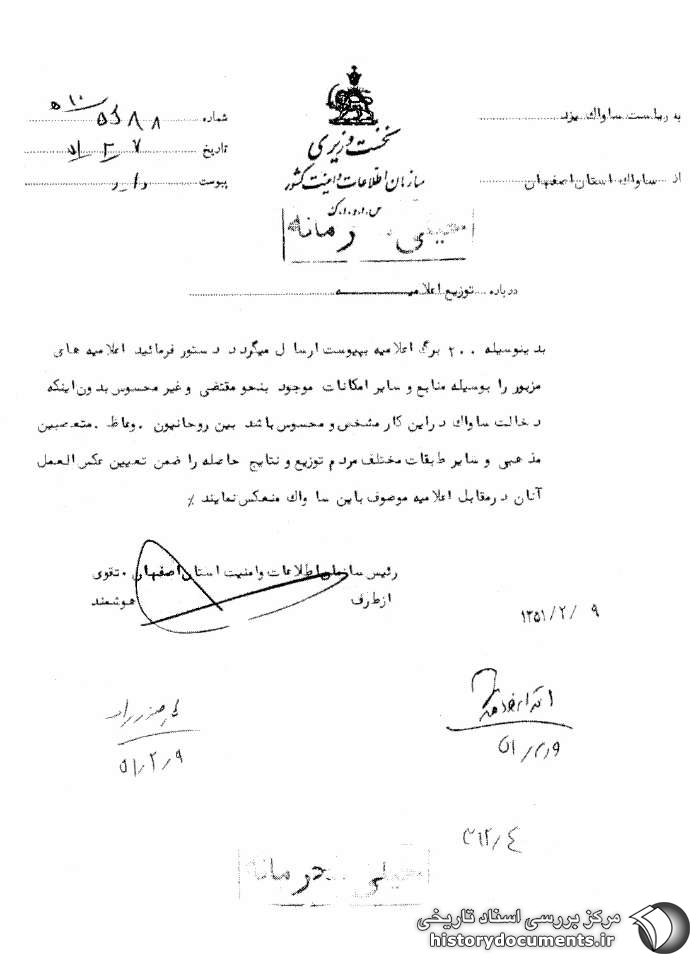 به ریاست ساواک یزد
از ساواک استان اصفهان
نخست وزیری
سازمان اطلاعات و امنیت کشور
س.ا.و.ا.ک
خیلی محرمانه
شماره
تاریخ ۵۱/۲/۷
پیوست دارد
درباره توزیع اعلامیــــه
بدینوسیله ۲۰۰ برگ اعلامیه بپیوست ارسال میگردد دستور فرمائید اعلامیه های
مزبور را بوسیله منابع و سایر امکانات موجود بنحو مقتضی و غیر محسوس بدون اینکه
دخالت ساواک در این کار مشخص و محسوس باشد بین روحانیون . وعاظ . متعصبین
مذهبی و سایر طبقات مختلف مردم توزیع و نتایج حاصله را ضمن تعیین عکس العمل
آنان در مقابل اعلامیه موصوف باین ساواک منعکس نمایند ٪
رئیس سازمان اطلاعات و امنیت استان اصفهان . تقوی
از طرف هوشمند
۱۳۵۱/۲/۹
۵۱/۲/۹
۵۱/۲/۹
۳۱۲/۴
خیلی محرمانه
مرکز بررسی اسناد تاریخی
historydocuments.ir